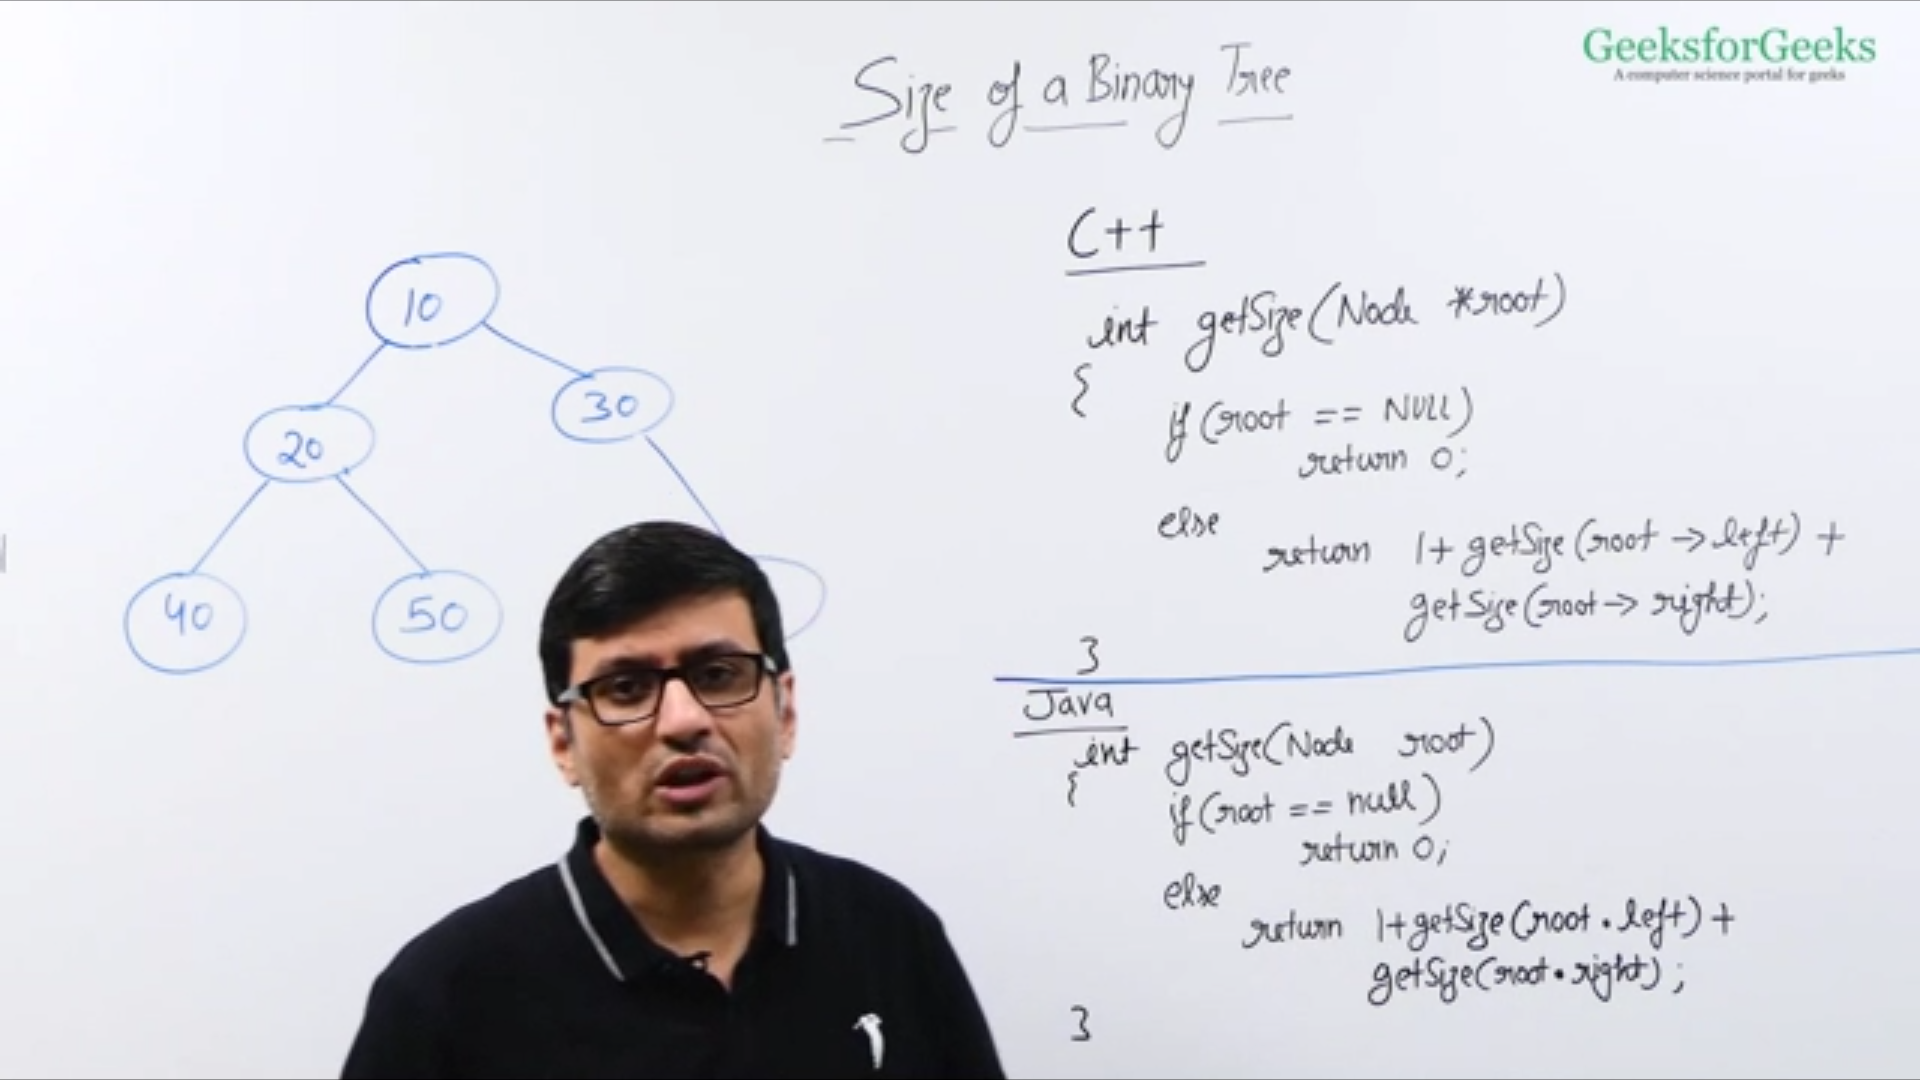 GeeksforGeeks
A computer science portal for geeks
Size of a Binary Tree
10
20
30
40
50
C++
int getSize(Node *root)
{
if (root == NULL)
return 0;
else
return 1+ getSize(root -> left) +
getSize(root -> right);
}
Java
int getSize(Node root)
{
if (root == null)
return 0;
else
return 1+getSize(root.left) +
getSize(root.right);
}